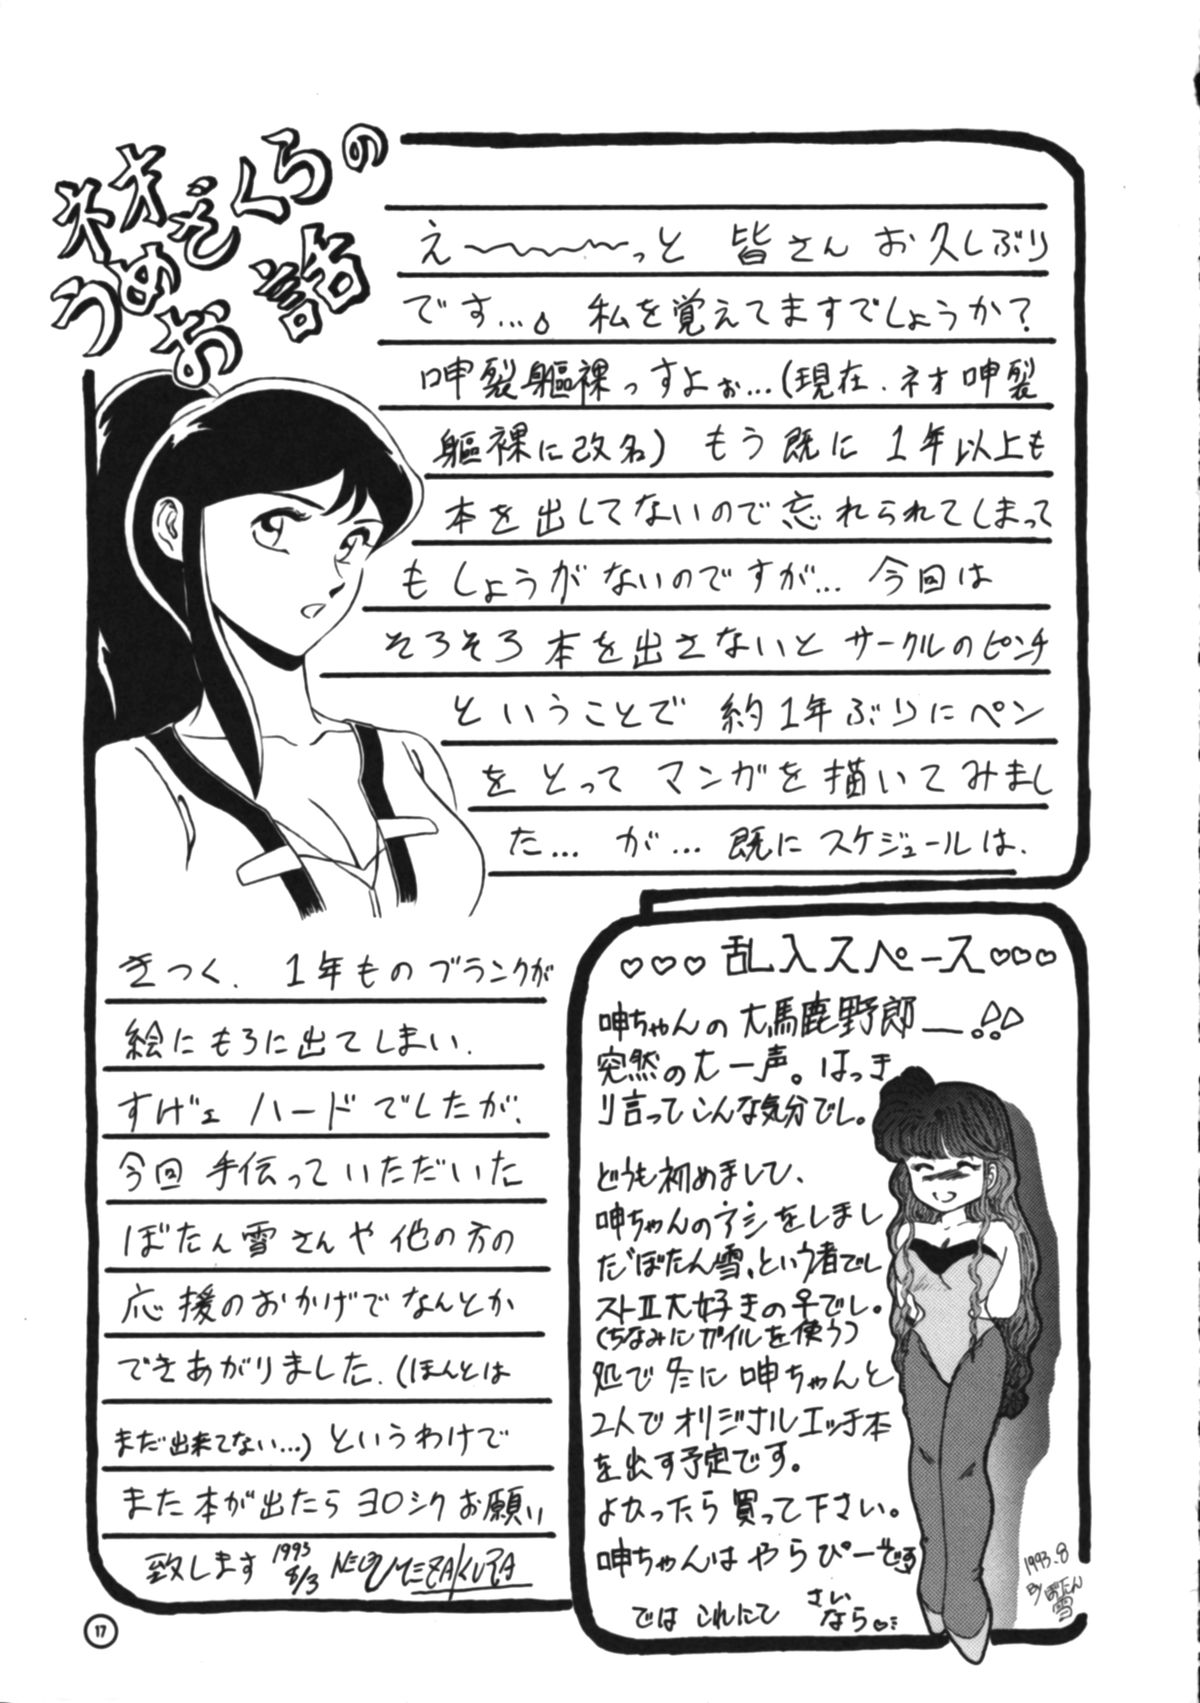 ネオ
うめざくらの
お話
え〜〜〜っと 皆さん お久しぶり
です…。私を覚えてますでしょうか?
呻裂軀裸っすよぉ…(現在、ネオ呻裂
軀裸に改名) もう既に 1年以上も
本を出してないので忘れられてしまって
もしょうがないのですが… 今回は
そろそろ本を出さないと サークルのピンチ
ということで 約1年ぶりにペン
をとって マンガを描いてみまし
た… が… 既にスケジュールは、
きつく、1年ものブランクが
絵にもろに出てしまい、
すげェ ハードでしたが、
今回 手伝っていただいた
ぼたん雪さんや他の方の
応援のおかげでなんとか
できあがりました。(ほんとは
まだ出来てない…) というわけで
また本が出たら ヨロシク お願い
致します 1993 8/3 NEO UMEZAKURA
♡♡♡乱入スペース♡♡♡
呻ちゃんの大馬鹿野郎ー!!
突然の大一声。はっき
り言ってこんな気分でし。
どうも初めまして、
呻ちゃんのアシをしまし
た"ぼたん雪"という者でし
ストⅡ大好きの♀でし。
(ちなみにガイルを使う)
処で冬に 呻ちゃんと
2人でオリジナルエッチ本
を出す予定です。
よかったら買って下さい。
呻ちゃんは やらぴーです
では これにて さいなら♡
1993.8
BY ぼたん雪
17